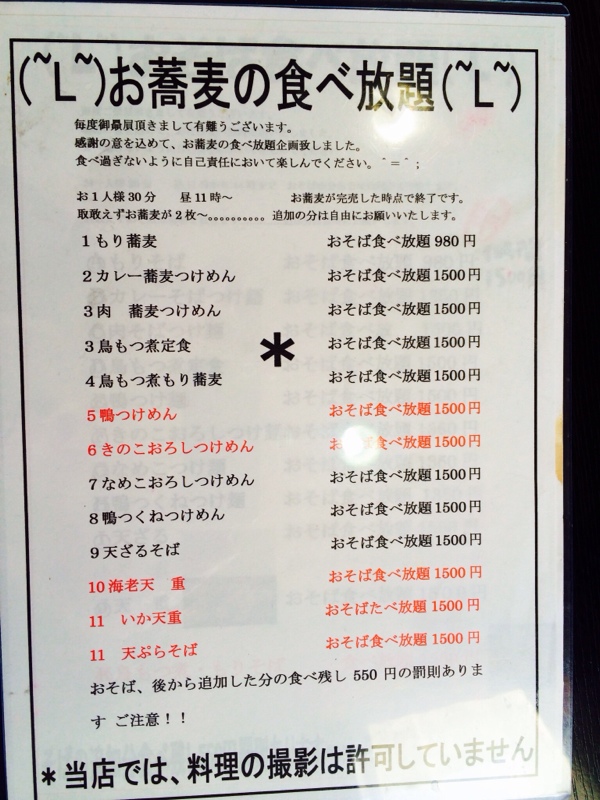 (~L~)お蕎麦の食べ放題(~L~)
毎度御贔屓頂きまして有難うございます。
感謝の意を込めて、お蕎麦の食べ放題企画致しました。
食べ過ぎないように自己責任において楽しんでください。＾＝＾；
お１人様30分　昼11時～　お蕎麦が完売した時点で終了です。
取敢えずお蕎麦が２枚～。。。。。。。。。。追加の分は自由にお願いいたします。
１もり蕎麦　おそば食べ放題980円
２カレー蕎麦つけめん　おそば食べ放題1500円
３肉　蕎麦つけめん　おそば食べ放題1500円
３鳥もつ煮定食　おそば食べ放題1500円
＊
４鳥もつ煮もり蕎麦　おそば食べ放題1500円
５鴨つけめん　おそば食べ放題1500円
６きのこおろしつけめん　おそば食べ放題1500円
７なめこおろしつけめん　おそば食べ放題1500円
８鴨つくねつけめん　おそば食べ放題1500円
９天ざるそば　おそば食べ放題1500円
10海老天　重　おそば食べ放題1500円
11　いか天重　おそばたべ放題1500円
11　天ぷらそば　おそば食べ放題1500円
おそば、後から追加した分の食べ残し 550 円の罰則ありま
す ご注意！！
＊当店では、料理の撮影は許可していません